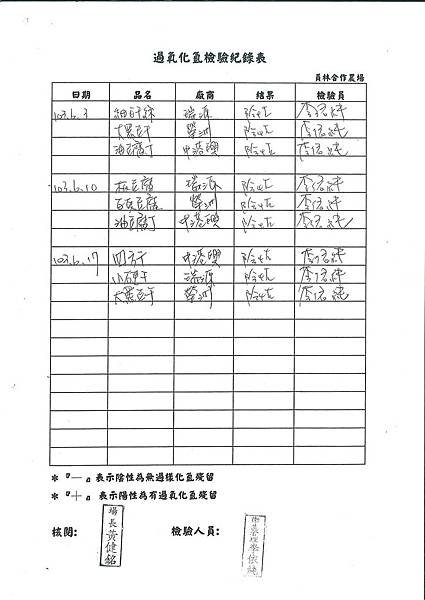 過氧化氫檢驗紀錄表
員林合作農場
日期 品名 廠商 結果 檢驗員
103.6.3 細豆干絲 瑞源 陰性 李依純
大黑豆干 榮洲 陰性 李依純
油豆腐丁 中港興 陰性 李依純
103.6.10 板豆腐 瑞源 陰性 李依純
百頁豆腐 榮洲 陰性 李依純
油豆腐丁 中港興 陰性 李依純
103.6.17 四方干 中港興 陰性 李依純
小磚干 瑞源 陰性 李依純
大黑豆干 榮洲 陰性 李依純
*『—』表示陰性為無過樣化氫殘留
*『+』表示陽性為有過氧化氫殘留
核閱: 場長黃健銘 檢驗人員: 李依純